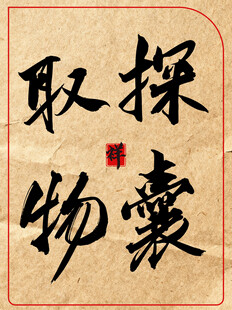 探囊
取物
祥